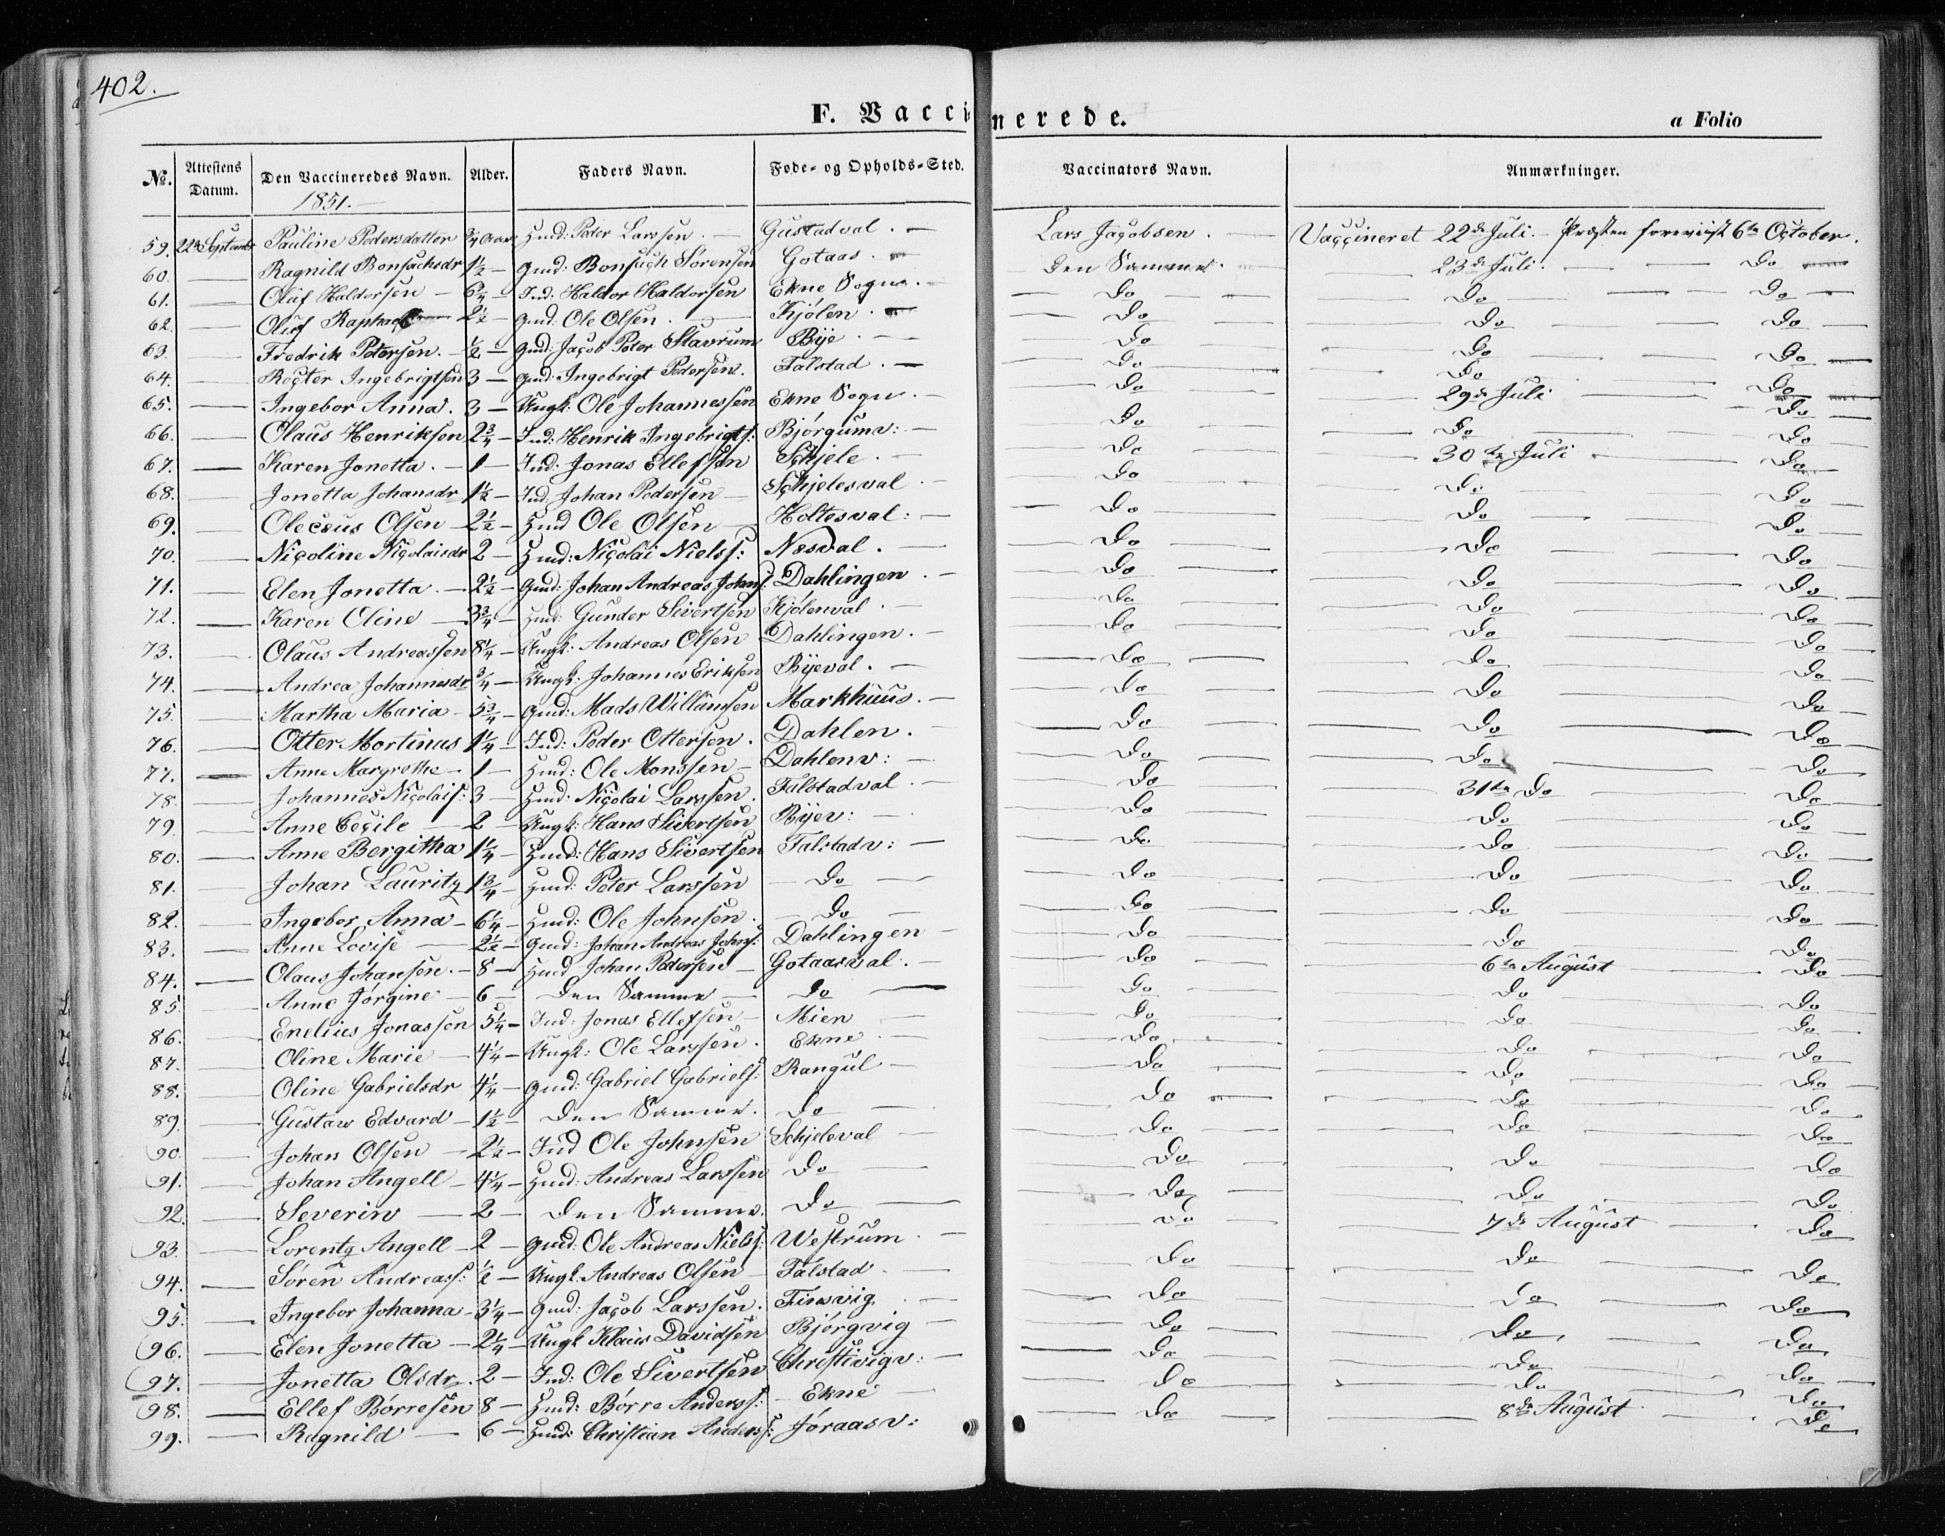 402.
F. Vaccinerede.
a Folio
No. Attestens Datum. Den Vaccineredes Navn. Alder. Faders Navn. Føde- og Opholds-Sted. Vaccinators Navn. Anmærkninger.
1851.
59. 22de Septembr Pauline Pedersdatter 3/4 Aar Huusmd: Peder Larssen. Gustadval. Lars Jacobsen. Vaccineret 22de Juli. Præsten foreviist 6te October.
60. — Ragnild Bonsachsdr 1 1/2 — Gmd: Bonsach Sørensen Gotaas. Den Samme. 23de Juli. Do
61. — Oluf Haldorsen — 6 3/4 — Ind: Haldor Haldorsen Ekne Sogn. Do Do Do
62. — Oluf Raphael 2 1/2 — Gmd: Ole Olsen. Kjølen. Do Do Do
63. — Fredrik Petersen. 1/2 — Gmd: Jacob Peter Stavrum Bye. Do Do Do
64. — Ingebrigtsen 3 — Gmd: Ingebrigt Pedersen. Falstad. Do Do Do
65. — Ingebor Anna. 3 — Ungk: Ole Johannessen Ekne Sogn. Do 29de Juli Do
66. — Olaus Henriksen 2 3/4 — Ind: Henrik Ingebrigts: Bjørgumv: Do Do Do
67. — Karen Jonetta. — 1 — Ind. Jonas Ellefsen Schjele. Do 30te Juli Do
68. — Jonetta Johansdr 1 1/2 — Ind: Johan Pedersen Schjelesval Do Do Do
69. — Olecsus Olsen — 2 1/2 — Hmd Ole Olsen Holtesval: Do Do Do
70. — Nicoline Nicolaisdr 2 — Hmd: Nicolai Niels: Næsval. Do Do Do
71. — Elen Jonetta. — 2 1/2 — Gmd: Johan Andreas Johns: Dahlingen. Do Do Do
72. — Karen Oline — 3 3/4 — Hmd: Gunder Sivertsen Kjølenval. Do Do Do
73. — Olaus Andreassen 8 1/4 — Ungk: Andreas Olsen Dahlingen. Do Do Do
74. — Andrea Johannesdr 3/4 — Ungk: Johannes Eriksen Byeval. Do Do Do
75. — Martha Maria — 5 3/4 — Gmd: Mads Willumsen Markhuus. Do Do Do
76. — Otter Mortinus 1 1/4 — Ind: Peder Ottersen. Dahlen. Do Do Do
77. — Anne Margrethe — 1 — Hmd: Ole Monssen — Dahlenv: Do Do Do
78. — Johannes Nicolais: 3 — Hmd: Nicolai Larssen. Falstadval Do 31te Do Do
79. — Anne Cecile — 2 — Ungk: Hans Sivertsen Byev: Do Do Do
80. — Anne Bergitha 1 1/4 — Hmd: Hans Sivertsen Falstadv: Do Do Do
81. — Johan Lauritz 1 3/4 — Hmd: Peter Larssen Do Do Do Do
82. — Ingebor Anna — 6 1/4 — Hmd: Ole Johnsen. Do Do Do Do
83. — Anne Lovise — 2 1/2 — Gmd: Johan Andreas Johns: Dahlingen Do Do Do
84. — Olaus Johansen. — 8 — Hmd Johan Pedersen — Gotaasval. Do 6te August Do
85. — Anne Jørgine — 6 — Den Samme Do Do Do Do
86. — Enelius Jonassen 5 1/4 — Ind: Jonas Ellefsen — Mien Do Do Do
87. — Oline Marie — 4 1/4 — Ungk: Ole Larssen. Ekne Do Do Do
88. — Oline Gabrielsdr 4 1/4 — Gmd: Gabriel Gabriels: Rangul Do Do Do
89. — Gustav Edvard — 1 1/2 — Den Samme. Do Do Do Do
90. — Johan Olsen — 2 1/2 — Ind Ole Johnsen Schjeleval Do Do Do
91. — Johan Angell — 4 1/4 — Hmd: Andreas Larssen Do Do Do Do
92. — Severin — 2 — Den Samme. Do Do Do Do
93. — Lorentz Angell — 2 — Gmd: Ole Andreas Niels: Westrum. Do 7de August Do
94. — Søren Andreass: 1/2 — Ungk: Andreas Olsen Falstad Do Do Do
95. — Ingebor Johanna — 3 1/4 — Gmd: Jacob Larssen. Finsvig Do Do Do
96. — Elen Jonetta — 2 1/4 — Ungk Klaus Davidsen Bjørgvig Do Do Do
97. — Jonetta Olsdr. 2 — Ind: Ole Sivertsen Christivigv: Do Do Do
98. — Ellef Børresen 8 — Hmd: Børre Anderss: — Ekne Do Do Do
99. — Ragnild — 6 — Hmd: Christian Anderss: Jøraasv: Do 8de August Do